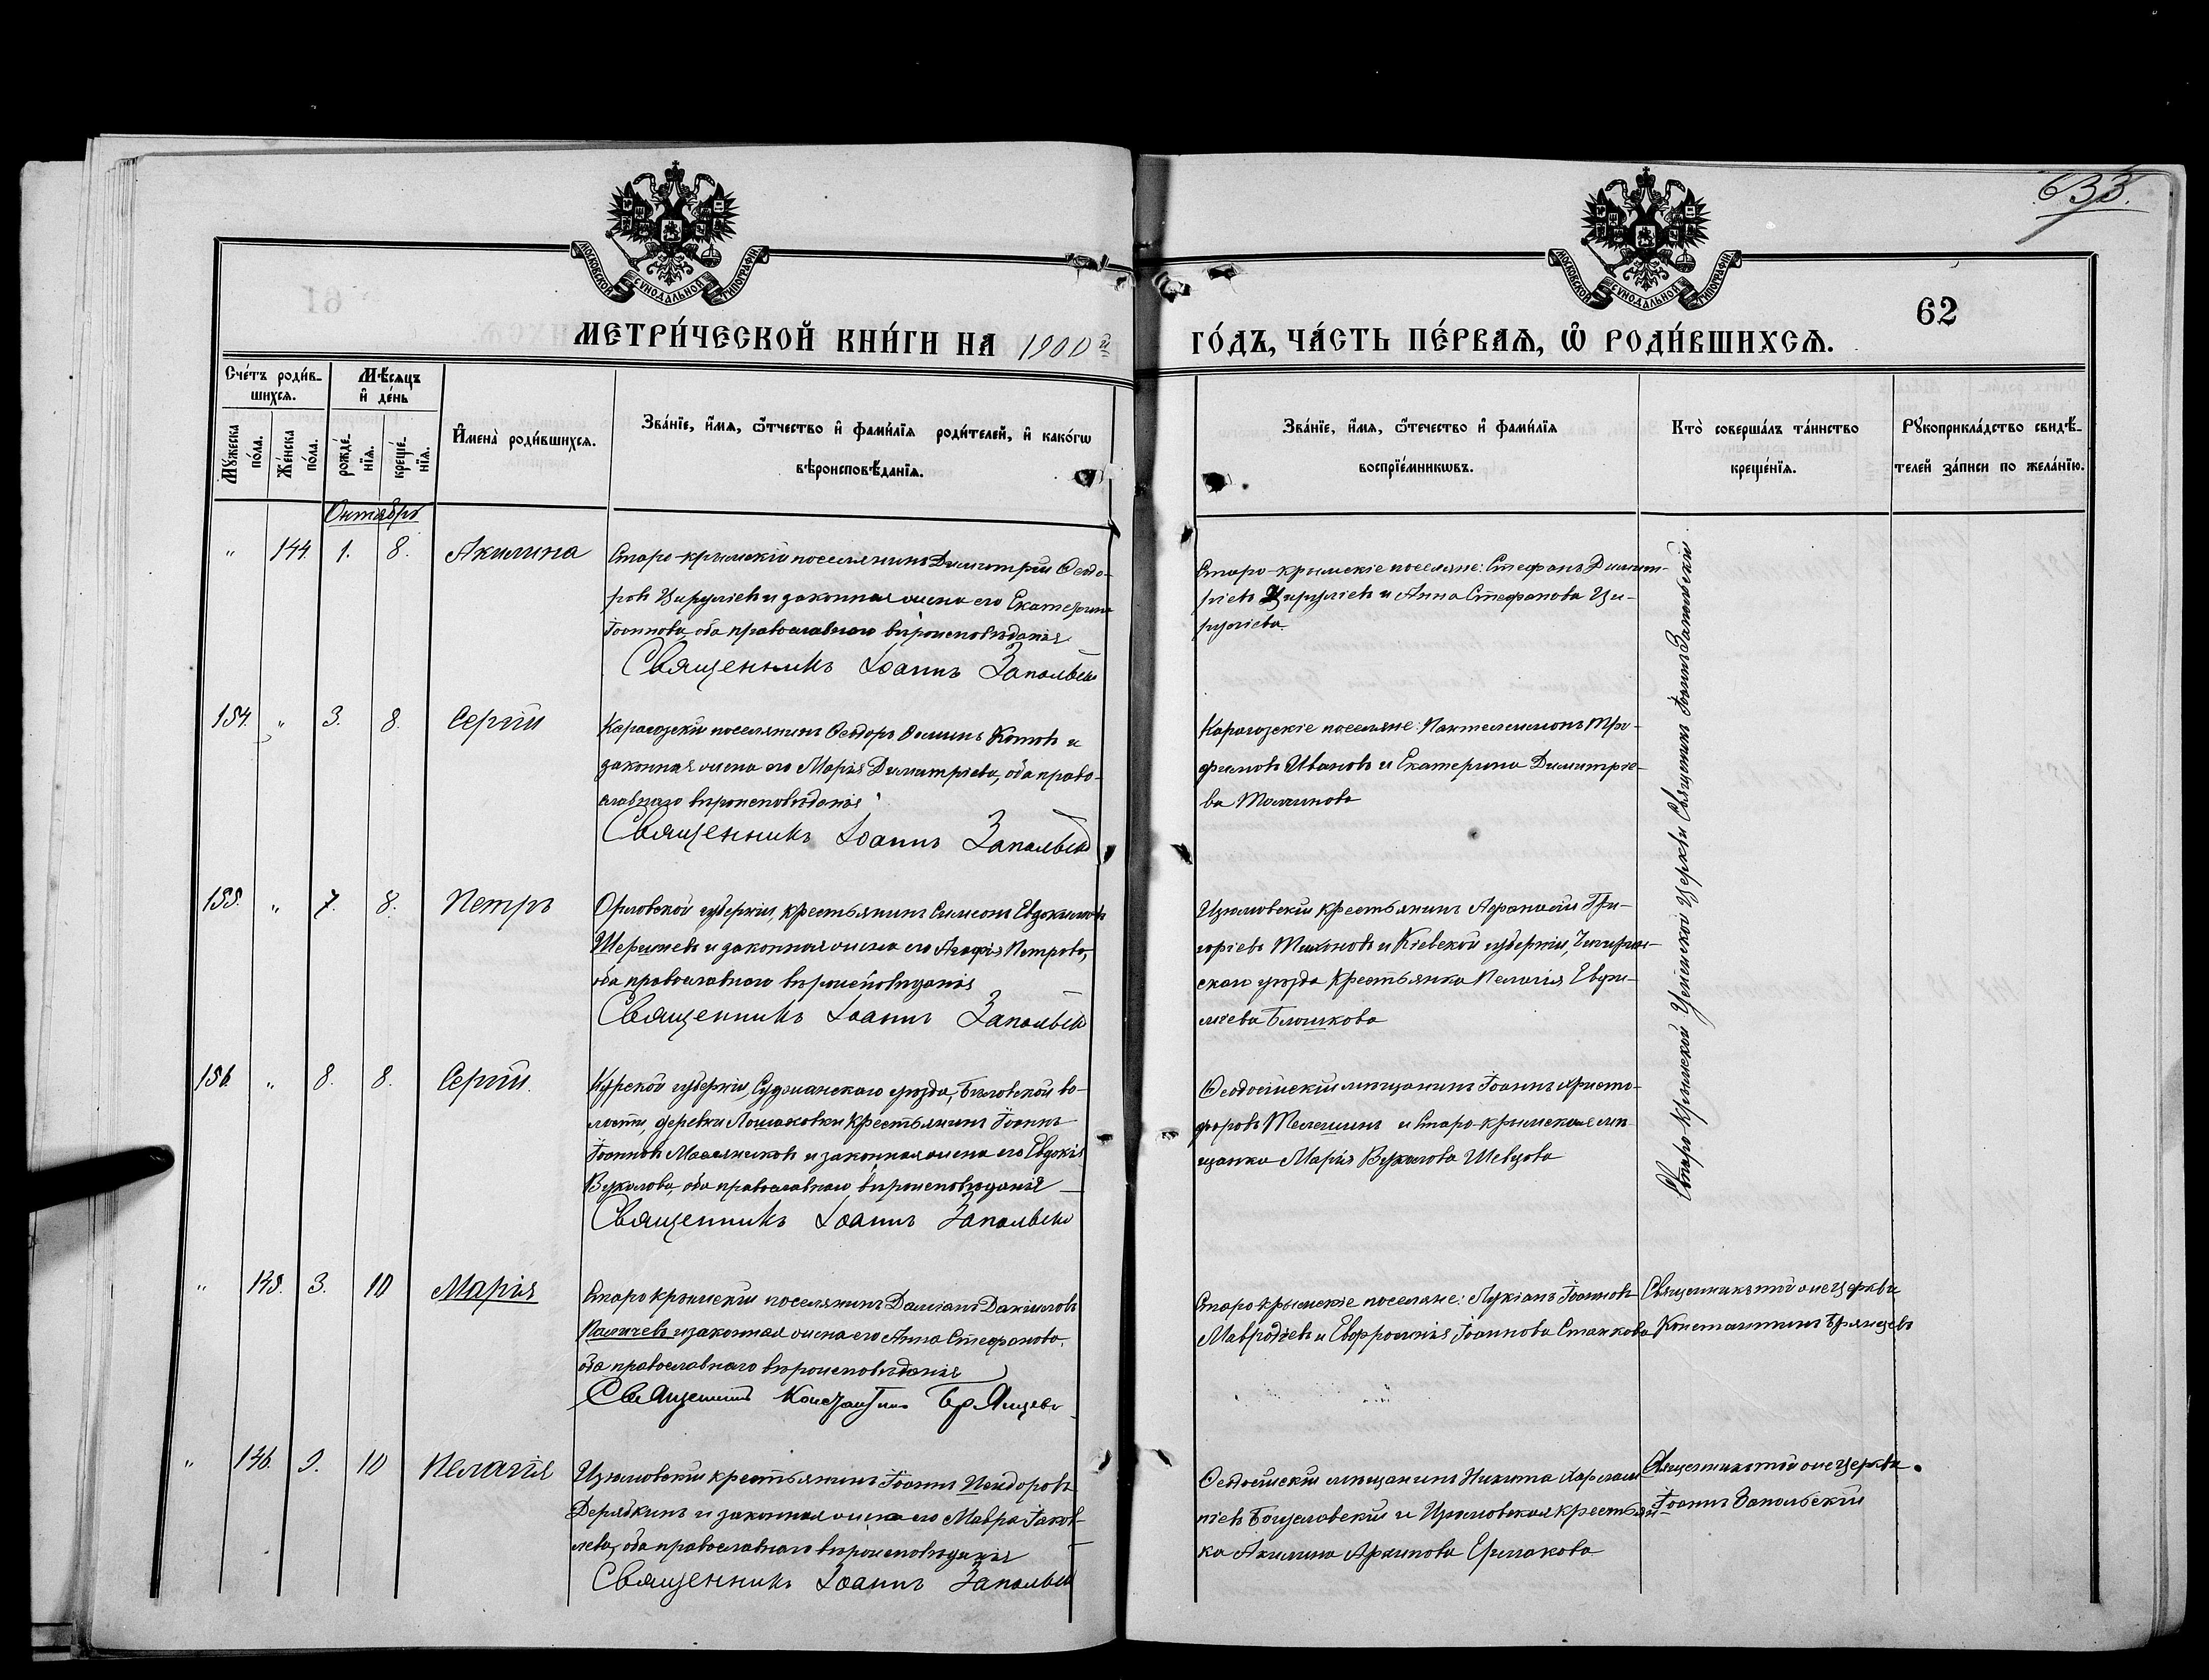 633.
МОСКОВСКОЙ СѴНОДАЛЬНОЙ ТИПОГРАФІИ
МОСКОВСКОЙ СѴНОДАЛЬНОЙ ТИПОГРАФІИ
62
МЕТРИ́ЧЕСКОЙ КНИ́ГИ НА 1900й ГО́ДЪ, ЧА́СТЬ ПЕ́РВАѦ, Ѽ РОДИ́ВШИХСѦ.
Сче́тъ роди́в-
шихсѧ.
Мѣ́сяцъ
и҆ де́нь
Мꙋ́жеска
по́ла.
Же́нска
по́ла.
рожде́-
нїѧ.
креще́-
нїѧ.
И҆мена̀ роди́вшихсѧ.
Зва́нїе, и҆́мѧ, ѻ҆́тчество и҆ фами́лїѧ роди́телей, и҆ како́гѡ
вѣроисповѣ́данїѧ.
Зва́нїе, и҆́мѧ, ѻ҆́течество и҆ фами́лїѧ
воспрїе́мникѡвъ.
Кто̀ соверша́лъ та́инство
креще́нїѧ.
Рꙋкоприкла́дство свидѣ́-
телей за́писи по жела́нїю.
Октябрь
" 144. 1. 8. Акилина
Старо-крымскій поселянинъ Димитрій Ѳеодо-
ровъ Цируліевъ и законная жена его Екатерина
Іоаннова, оба православнаго вѣроисповѣданія
Священникъ Іоаннъ Запольскій
Старо-крымскіе поселяне: Стефанъ Димит-
ріевъ Цируліевъ и Анна Стефанова Ци-
руліева.
154. " 3. 8. Сергій
Карагозскій поселянинъ Ѳеодоръ Ѳоминъ Котовъ и
законная жена его Марія Димитріева, оба право-
славнаго вѣроисповѣданія
Священникъ Іоаннъ Запольскій
Карагозскіе поселяне: Пантелеимонъ Три-
фоновъ Ивановъ и Екатерина Димитріе-
ва
155. " 7. 8. Петръ
Орловской губерніи, крестьянинъ Симеонъ Евдокимовъ
и законная жена его Агафія Петрова,
оба православнаго вѣроисповѣданія
Священникъ Іоаннъ Запольскій
Изюмовскій крестьянинъ Аѳанасій Гри-
горіевъ Тихоновъ и Кіевской губерніи, Чигирин-
скаго уѣзда крестьянка Пелагія Евфи-
міева
156. " 8. 8. Сергій.
Курской губерніи, Суджанскаго уѣзда, Бѣловской во-
лости, деревни крестьянинъ Іоаннъ
Іоанновъ Масленниковъ и законная жена его Евдокія
Вуколова, оба православнаго вѣроисповѣданія
Священникъ Іоаннъ Запольскій
Ѳеодосійскій мѣщанинъ Іоаннъ Христо-
форовъ Телешинъ и Старо-крымская мѣ
щанка Марія Вуколова Шевцова
Старо-крымской Успенской церкви Священникъ Іоаннъ Запольскій
" 145. 3. 10 Марія
Старокрымскій поселянинъ Даміанъ Даніиловъ
Паличевъ и законная жена его Анна Стефанова,
оба православнаго вѣроисповѣданія
Священникъ Константинъ Брянцевъ
Старокрымскіе поселяне: Лукіанъ Іоанновъ
Мавродіевъ и Евфросинія Іоаннова Станкова
Священникъ той же церкви
Константинъ Брянцевъ
" 146. 9. 10 Пелагія
Изюмовскій крестьянинъ Іоаннъ Исидоровъ
Дерябкинъ и законная жена его Мавра Іаков-
лева, оба православнаго вѣроисповѣданія
Священникъ Іоаннъ Запольскій
Ѳеодосійскій мѣщанинъ Никита Харлам
піевъ Богуславскій и Изюмовская крестьян-
ка Акилина Архипова Ермакова
Священникъ той же церкви
Іоаннъ Запольскій